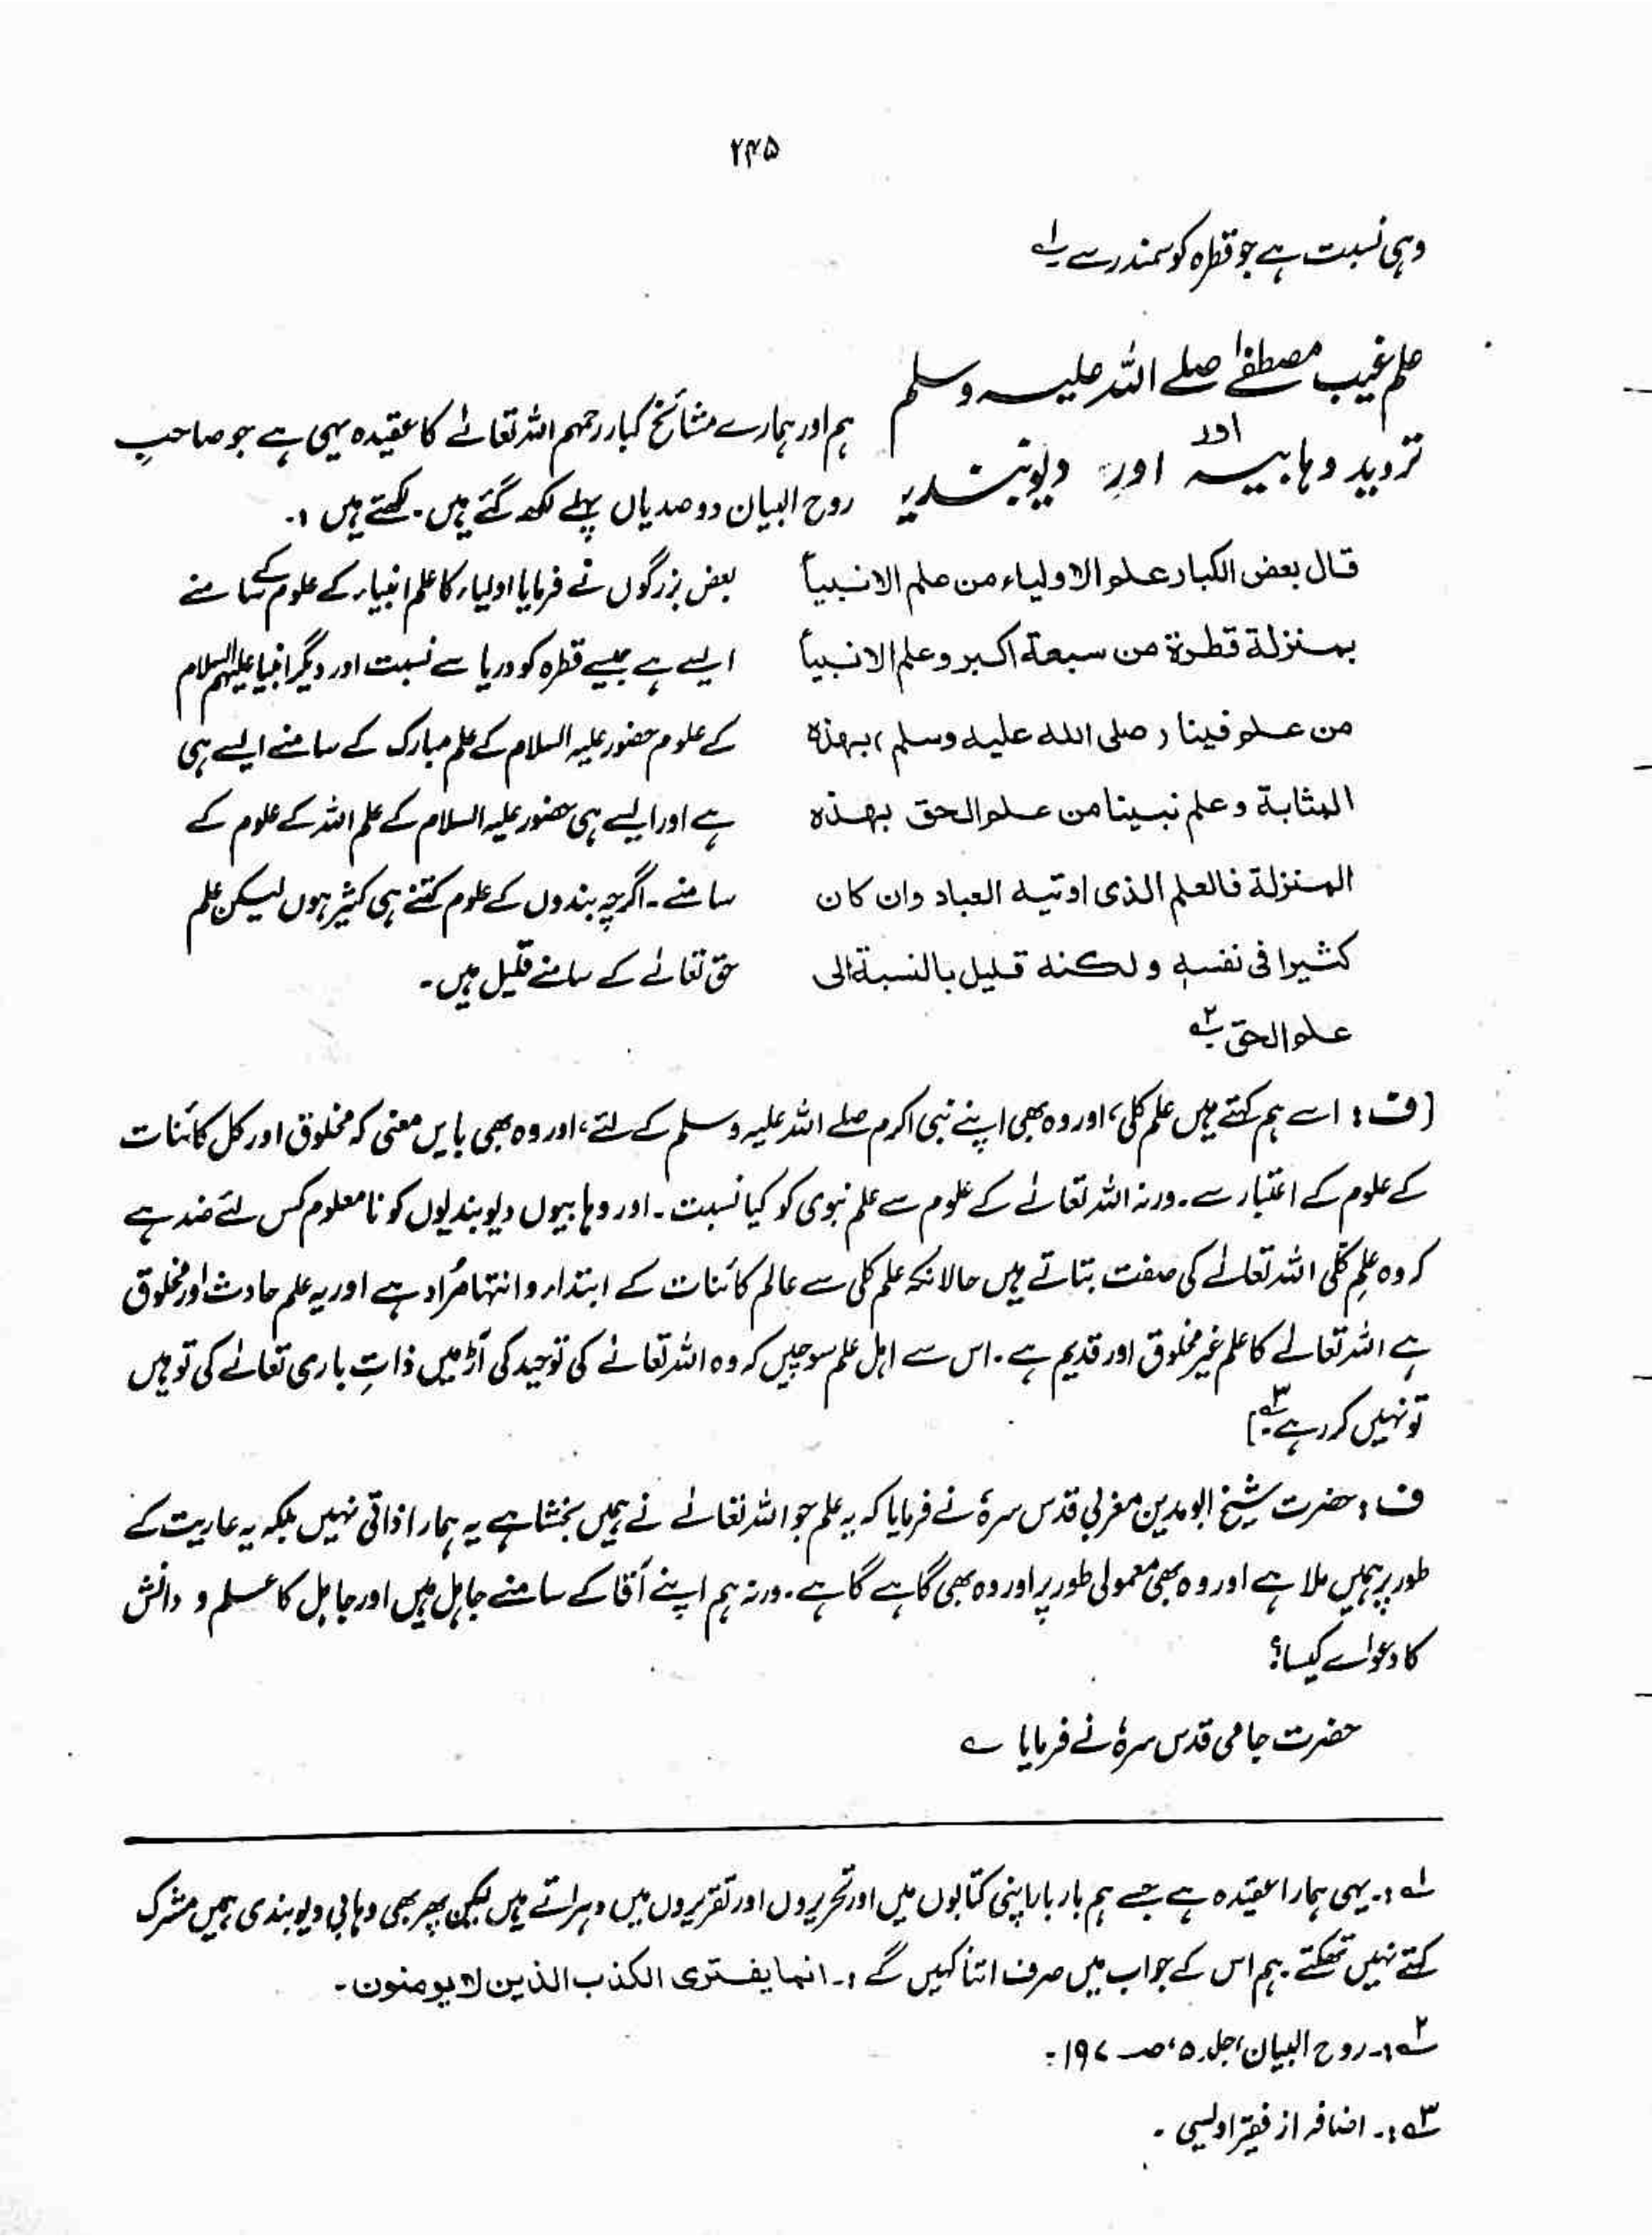 ۲۴۵
وہی نسبت ہے جو قطرہ کو سمندر سے ۱؎
علم غیب مصطفےٰ صلے اللہ علیہ وسلم
اور
تردید وہابیہ اور دیوبندیہ
ہم اور ہمارے مشائخ کبار رحمہم اللہ تعالےٰ کا عقیدہ یہی ہے جو صاحبِ
روح البیان دو صدیاں پہلے لکھ گئے ہیں۔ لکھتے ہیں :۔
قال بعض الكبار علم الاولياء من علم الانبيأ
بمنزلة قطرة من سبعة اكبر وعلم الانبيأ
من علم فينا (صلى الله عليه وسلم) بهذه
المثابة وعلم نبينا من علم الحق بهذه
المنزلة فالعلم الذى اوتيه العباد وان كان
كثيرا فى نفسهٖ ولكنه قليل بالنسبة الى
علم الحق ۲؎
بعض بزرگوں نے فرمایا اولیاء کا علم انبیاء کے علوم کے سامنے
ایسے ہے جیسے قطرہ کو دریا سے نسبت اور دیگر انبیا علیہم السلام
کے علوم حضور علیہ السلام کے علم مبارک کے سامنے ایسے ہی
ہے اور ایسے ہی حضور علیہ السلام کے علم اللہ کے علوم کے
سامنے۔ اگرچہ بندوں کے علوم کتنے ہی کثیر ہوں لیکن علم
حق تعالےٰ کے سامنے قلیل ہیں۔
[ف : اسے ہم کہتے ہیں علم کلی، اور وہ بھی اپنے نبی اکرم صلے اللہ علیہ وسلم کے لئے، اور وہ بھی بایں معنی کہ مخلوق اور کل کائنات
کے علوم کے اعتبار سے۔ ورنہ اللہ تعالےٰ کے علوم سے علم نبوی کو کیا نسبت۔ اور وہابیوں دیوبندیوں کو نا معلوم کس لئے ضد ہے
کہ وہ علمِ کلّی اللہ تعالےٰ کی صفت بتاتے ہیں حالانکہ علم کلی سے عالم کائنات کے ابتداء و انتہا مُراد ہے اور یہ علم حادث اور مخلوق
ہے اللہ تعالےٰ کا علم غیر مخلوق اور قدیم ہے۔ اس سے اہل علم سوچیں کہ وہ اللہ تعالےٰ کی توحید کی آڑ میں ذاتِ باری تعالےٰ کی توہیں
تو نہیں کر رہے ۳؎]
ف : حضرت شیخ ابو مدین مغربی قدس سرہٗ نے فرمایا کہ یہ علم جو اللہ تعالےٰ نے ہمیں بخشا ہے یہ ہمارا ذاتی نہیں بلکہ یہ عاریت کے
طور پر ہمیں ملا ہے اور وہ بھی معمولی طور پر اور وہ بھی گاہے گاہے۔ ورنہ ہم اپنے آقا کے سامنے جاہل ہیں اور جاہل کا علم و دانش
کا دعواے کیسا؟
حضرت جامی قدس سرہٗ نے فرمایا ؎
۱؎ :۔ یہی ہمارا عقیدہ ہے جسے ہم بار بار اپنی کتابوں میں اور تحریروں اور تقریروں میں دہراتے ہیں لیکن پھر بھی وہابی دیوبندی ہمیں مشرک
کہتے نہیں تھکتے۔ ہم اس کے جواب میں صرف اتنا کہیں گے :۔ انما یفتری الکذب الذین لا یومنون۔
۲؎ :۔ روح البیان، جلد ۵، صـ ۱۹۷ :
۳؎ :۔ اضافہ از فقیر اویسی ۔